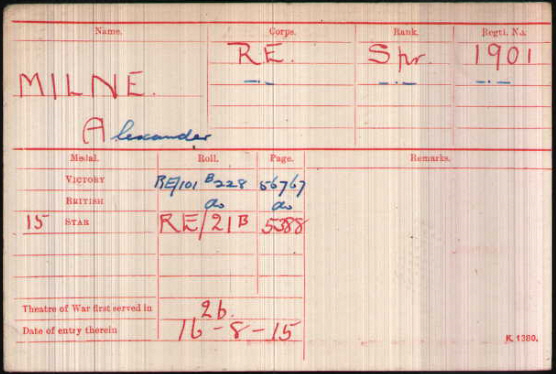 Name. Corps. Rank. Regtl. No.
MILNE. R.E. Spr. 1901
—·— —·— —·—
Alexander
Medal. Roll. Page. Remarks.
VICTORY RE/101 B228 56767
BRITISH do do
15 STAR RE/21B 5388
Theatre of War first served in 2b.
Date of entry therein 16-8-15
K. 1380.